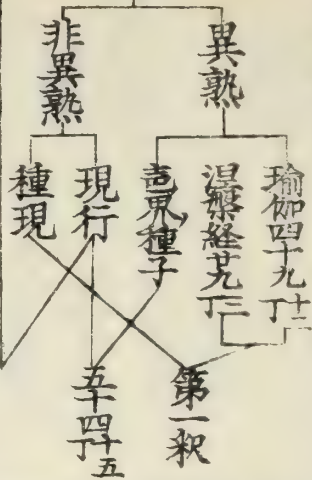 異熟
非異熟
瑜伽四十九 十二丁
涅槃経廿九 三丁
壱界種子
現行
種現
第一釈
五十四 十五丁